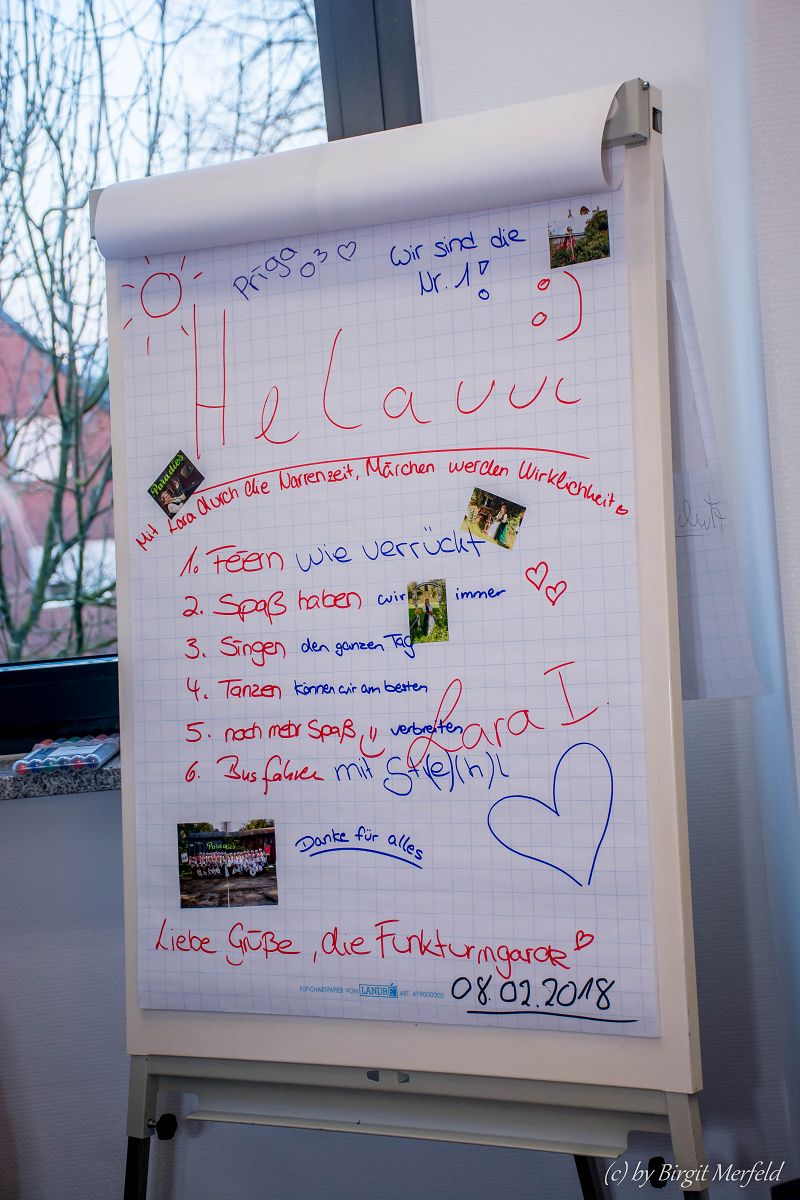 Priga 03 ♡
Wir sind die
Nr. 1!
:)
Helauuu
Paradies
Mit Lara durch die Narrenzeit, Märchen werden Wirklichkeit
1. Feiern wie verrückt
2. Spaß haben wir immer
3. Singen den ganzen Tag
4. Tanzen können wir am besten
5. noch mehr Spaß verbreiten
Lara I.
6. Bus fahren mit St(e)(h)l
Paradies
Danke für alles
Liebe Grüße, die Funkturmgarde
FLIP-CHART-PAPIER VON LANDRÉ ART. 419000005
08.02.2018
(c) by Birgit Merfeld